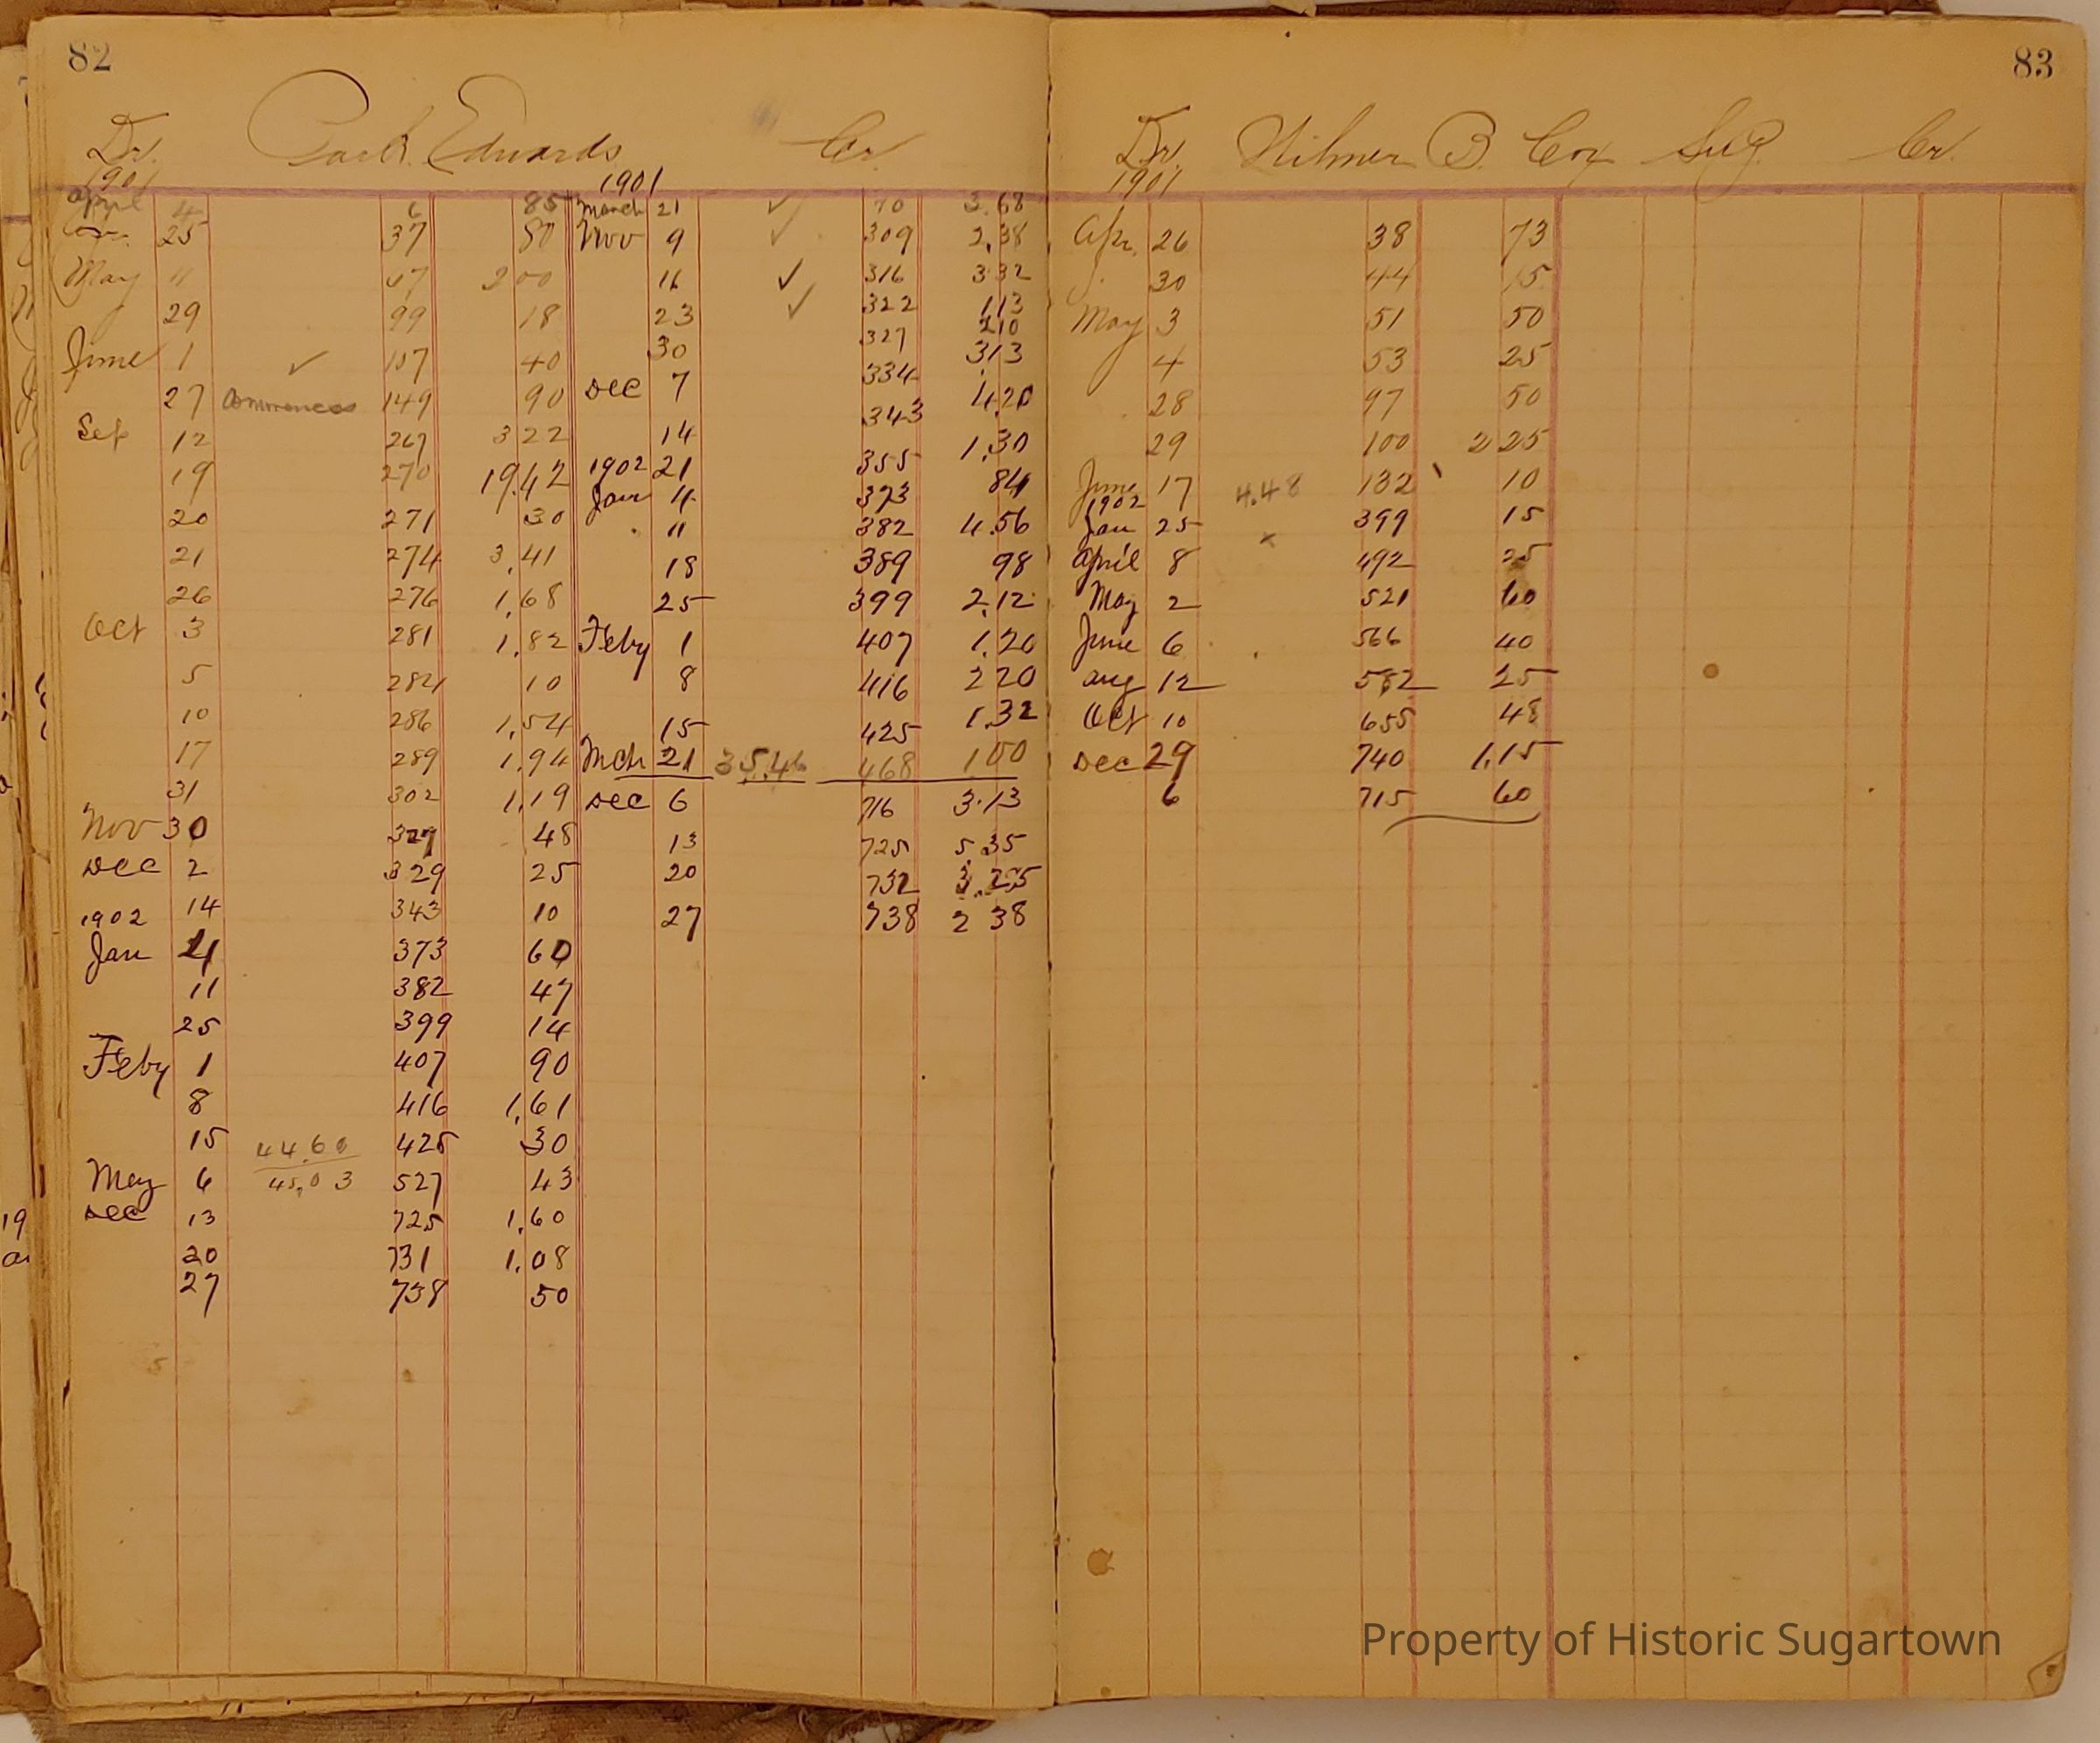 82
Dr. Edwards Cr
1901
April 4 6 85
25 37 50
May 11 67 200
29 99 18
June 1 ✓ 107 40
27 149 90
Sep 12 267 3 22
19 270 19.42
20 271 30
21 274 3.41
26 276 1.68
Oct 3 281 1.82
5 282 10
10 286 1.54
17 289 1.94
31 302 1.19
Nov 30 327 48
Dec 2 329 25
14 343 10
1902
Jan 4 373 60
11 382 47
25 399 14
Feby 1 407 90
8 416 1.61
15 44.60 425 30
May 6 45.03 527 43
Dec 13 725 1.60
20 731 1.08
27 738 50
1901
March 21 ✓ 70 3.68
Nov 9 ✓ 309 2.38
16 ✓ 316 3 32
23 ✓ 322 1 13
30 327 2 10
Dec 7 334 3 13
14 343 4.20
21 355 1.30
1902
Jan 4 373 84
11 382 4.56
18 389 98
25 399 2.12
Feby 1 407 1.20
8 416 2 20
15 425 1.32
Mch 21 35.46 468 1 00
Dec 6 716 3.13
13 725 5.35
20 732 3.25
27 738 2 38
83
Dr. B. Cox Sug. Cr.
1901
Apr. 26 38 73
30 44 15
May 3 51 50
4 53 25
28 97 50
29 100 2 25
June 17 4.48 132 10
1902
Jan 25 x 399 15
April 8 492 25
May 2 521 60
June 6 566 40
Aug 12 582 25
Oct 10 655 48
Dec 29 740 1.15
6 715 60
Property of Historic Sugartown